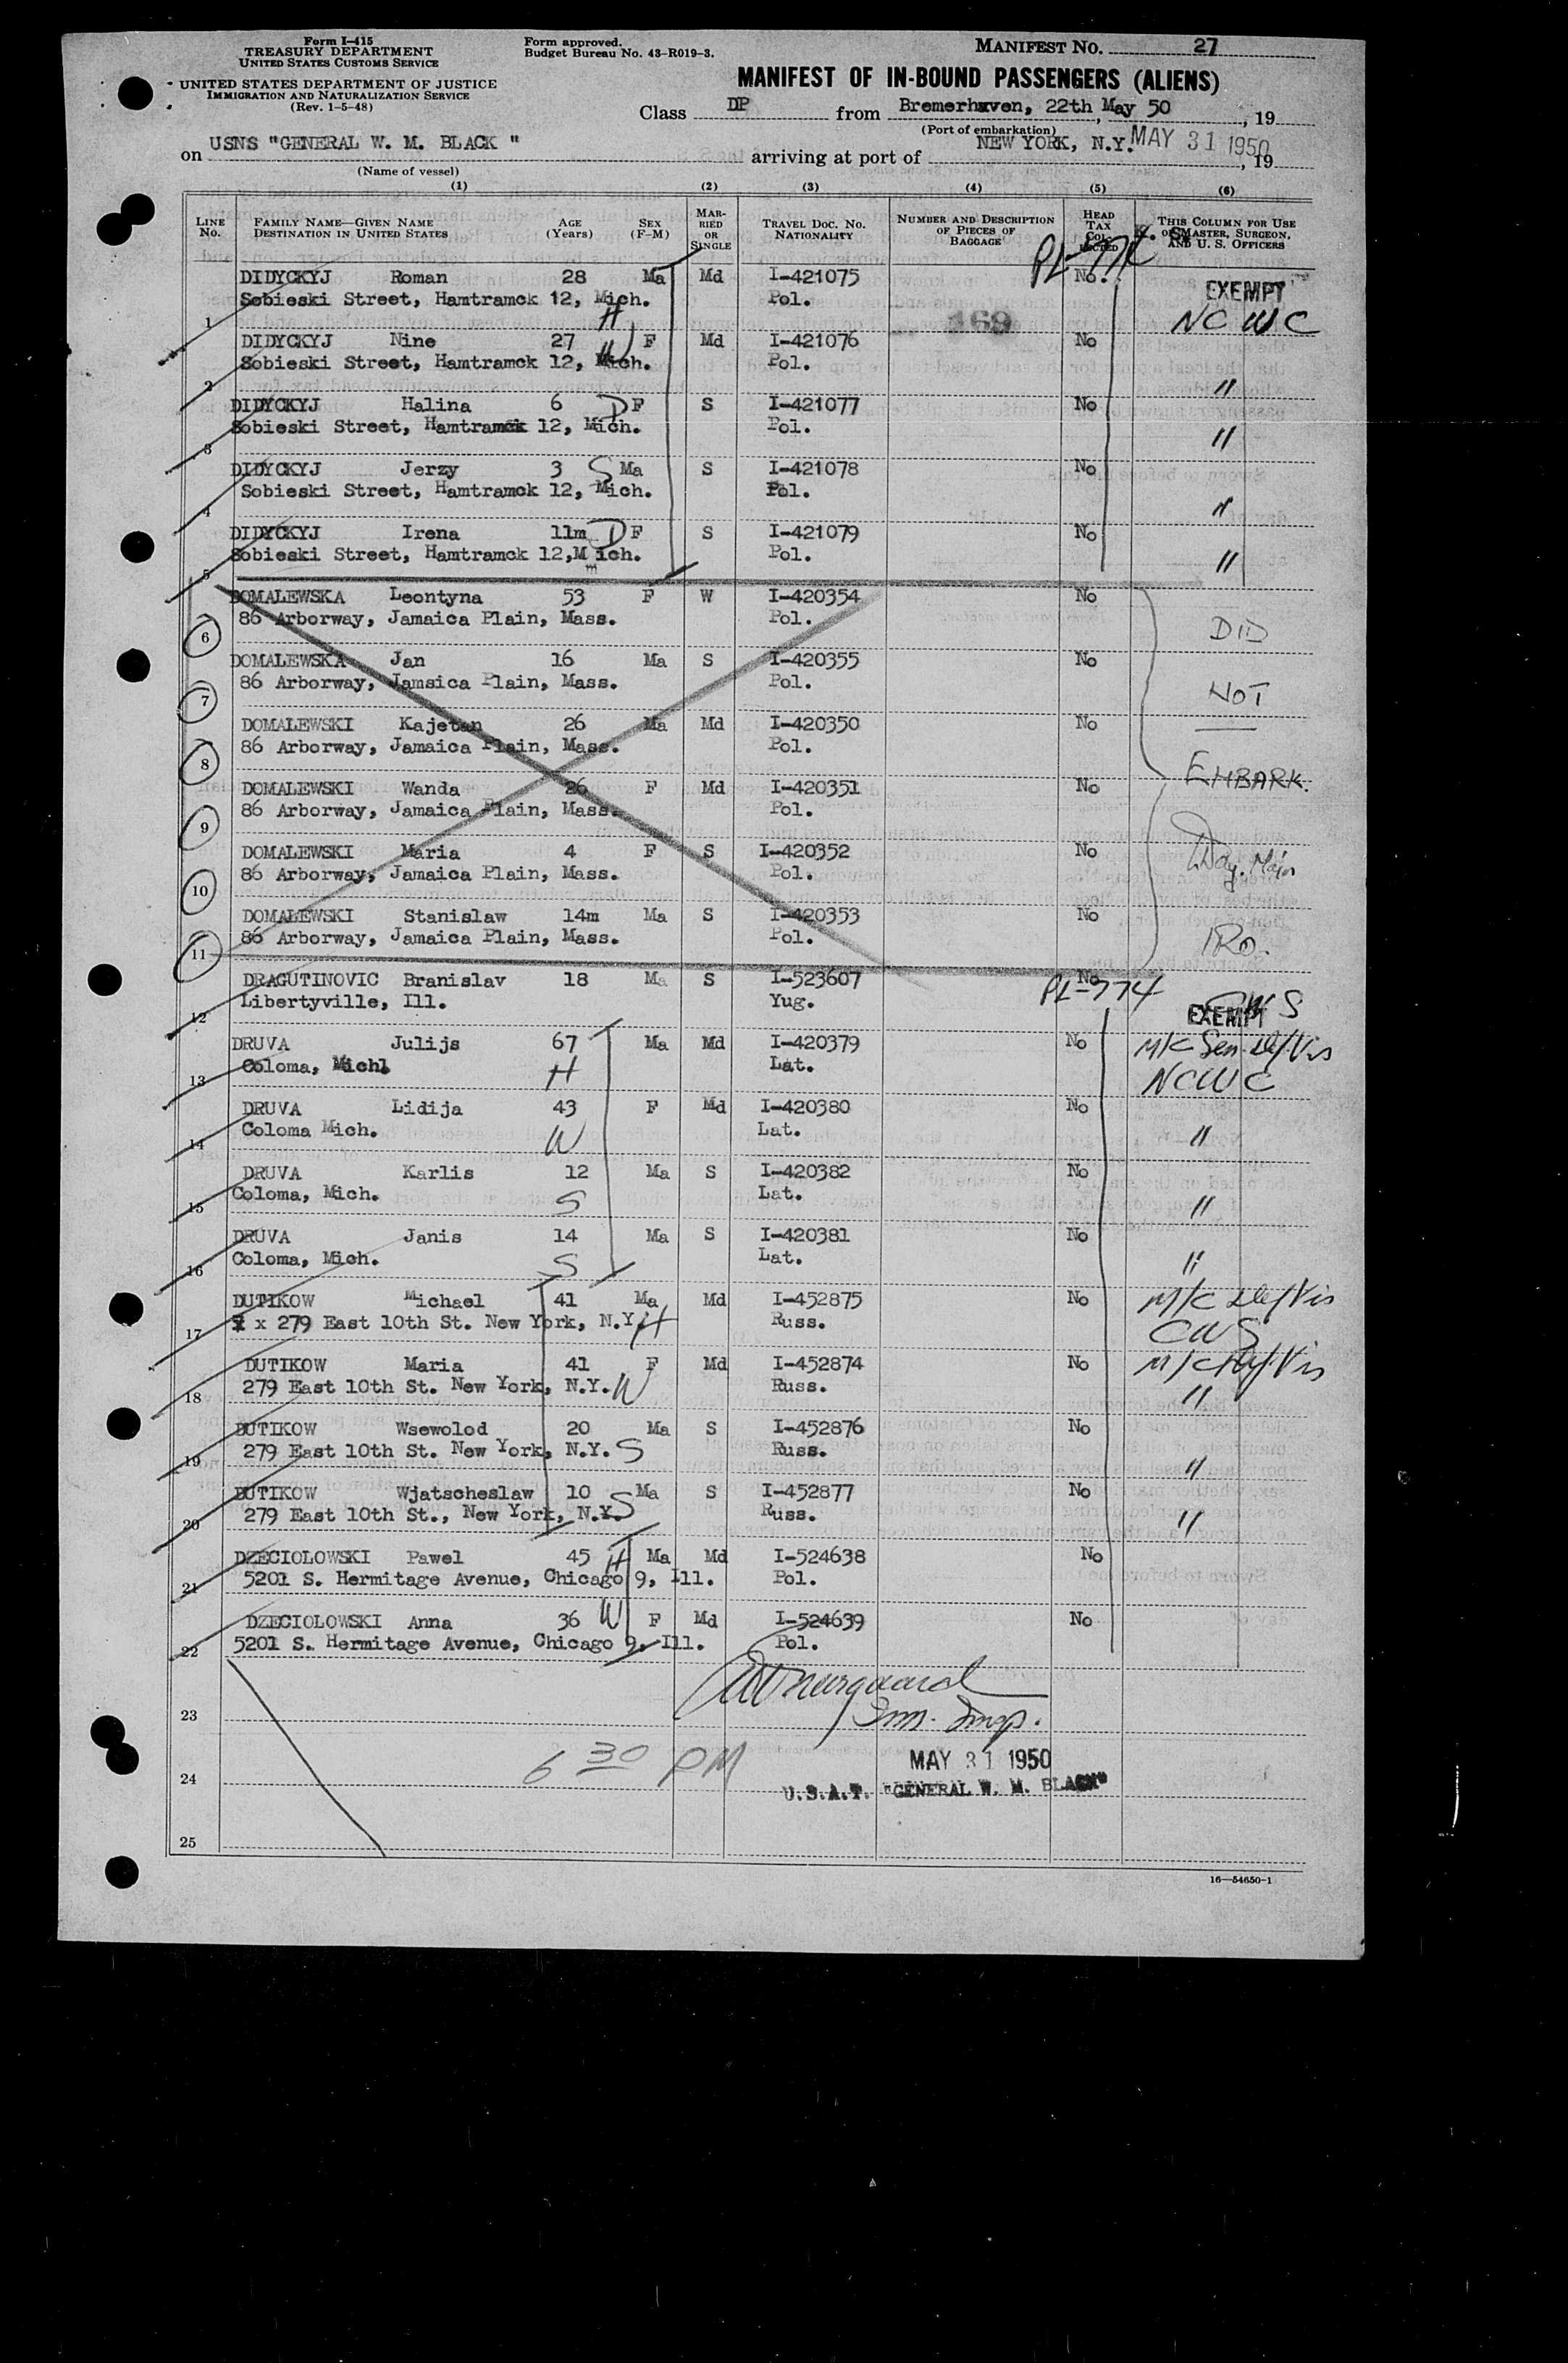 Form I-415
TREASURY DEPARTMENT
UNITED STATES CUSTOMS SERVICE
UNITED STATES DEPARTMENT OF JUSTICE
IMMIGRATION AND NATURALIZATION SERVICE
(Rev. 1-5-48)
Form approved.
Budget Bureau No. 43-R019-3.
MANIFEST NO. 27
MANIFEST OF IN-BOUND PASSENGERS (ALIENS)
Class DP from Bremerhaven, 22th May 50, 19
(Port of embarkation)
on USNS "GENERAL W. M. BLACK " arriving at port of NEW YORK, N.Y. MAY 31 1950, 19
(Name of vessel)
(1) (2) (3) (4) (5) (6)
LINE NO. FAMILY NAME—GIVEN NAME DESTINATION IN UNITED STATES AGE (Years) SEX (F-M) MARRIED OR SINGLE TRAVEL DOC. NO. NATIONALITY NUMBER AND DESCRIPTION OF PIECES OF BAGGAGE HEAD TAX COLLECTED THIS COLUMN FOR USE OF MASTER, SURGEON, AND U. S. OFFICERS
PL-774
DIDYCKYJ Roman 28 Ma Md I-421075 No. EXEMPT
1 Sobieski Street, Hamtramck 12, Mich. H Pol. 169 NCWC
DIDYCKYJ Nine 27 W F Md I-421076 No
2 Sobieski Street, Hamtramck 12, Mich. Pol. "
DIDYCKYJ Halina 6 D F S I-421077 No
3 Sobieski Street, Hamtramck 12, Mich. Pol. "
DIDYCKYJ Jerzy 3 S Ma S I-421078 No
4 Sobieski Street, Hamtramck 12, Mich. Pol. "
DIDYCKYJ Irena 11m D F S I-421079 No
5 Sobieski Street, Hamtramck 12,Mich. Pol. "
DOMALEWSKA Leontyna 53 F W I-420354 No
6 86 Arborway, Jamaica Plain, Mass. Pol. DID
DOMALEWSKA Jan 16 Ma S I-420355 No
7 86 Arborway, Jamsica Plain, Mass. Pol. NOT
DOMALEWSKI Kajetan 26 Ma Md I-420350 No
8 86 Arborway, Jamaica Plain, Mass. Pol. EMBARK.
DOMALEWSKI Wanda 26 F Md I-420351 No
9 86 Arborway, Jamaica Plain, Mass. Pol.
DOMALEWSKI Maria 4 F S I-420352 No
10 86 Arborway, Jamaica Plain, Mass. Pol.
DOMALEWSKI Stanislaw 14m Ma S I-420353 No
11 86 Arborway, Jamaica Plain, Mass. Pol. IRO.
DRAGUTINOVIC Branislav 18 Ma S I-523607 No
12 Libertyville, Ill. Yug. PL-774 CWS EXEMPT
DRUVA Julijs 67 Ma Md I-420379 No M/C Sen. Def Vis
13 Coloma, Mich. H Lat. NCWC
DRUVA Lidija 43 F Md I-420380 No
14 Coloma Mich. W Lat. "
DRUVA Karlis 12 Ma S I-420382 No
15 Coloma, Mich. S Lat. "
DRUVA Janis 14 Ma S I-420381 No
16 Coloma, Mich. S Lat. "
DUTIKOW Michael 41 Ma Md I-452875 No M/C Def/Vis
17 x 279 East 10th St. New York, N.Y. H Russ. CWS
DUTIKOW Maria 41 F Md I-452874 No M/C Def/Vis
18 279 East 10th St. New York, N.Y. W Russ. "
DUTIKOW Wsewolod 20 Ma S I-452876 No
19 279 East 10th St. New York, N.Y. S Russ. "
DUTIKOW Wjatscheslaw 10 Ma S I-452877 No
20 279 East 10th St., New York, N.Y. S Russ. "
DZECIOLOWSKI Pawel 45 H Ma Md I-524638 No
21 5201 S. Hermitage Avenue, Chicago 9, Ill. Pol.
DZECIOLOWSKI Anna 36 W F Md I-524639 No
22 5201 S. Hermitage Avenue, Chicago 9, Ill. Pol.
23 Imm. Insp.
24 6 30 PM MAY 31 1950
U.S.A.T. "GENERAL W. M. BLACK"
25
16—54650-1